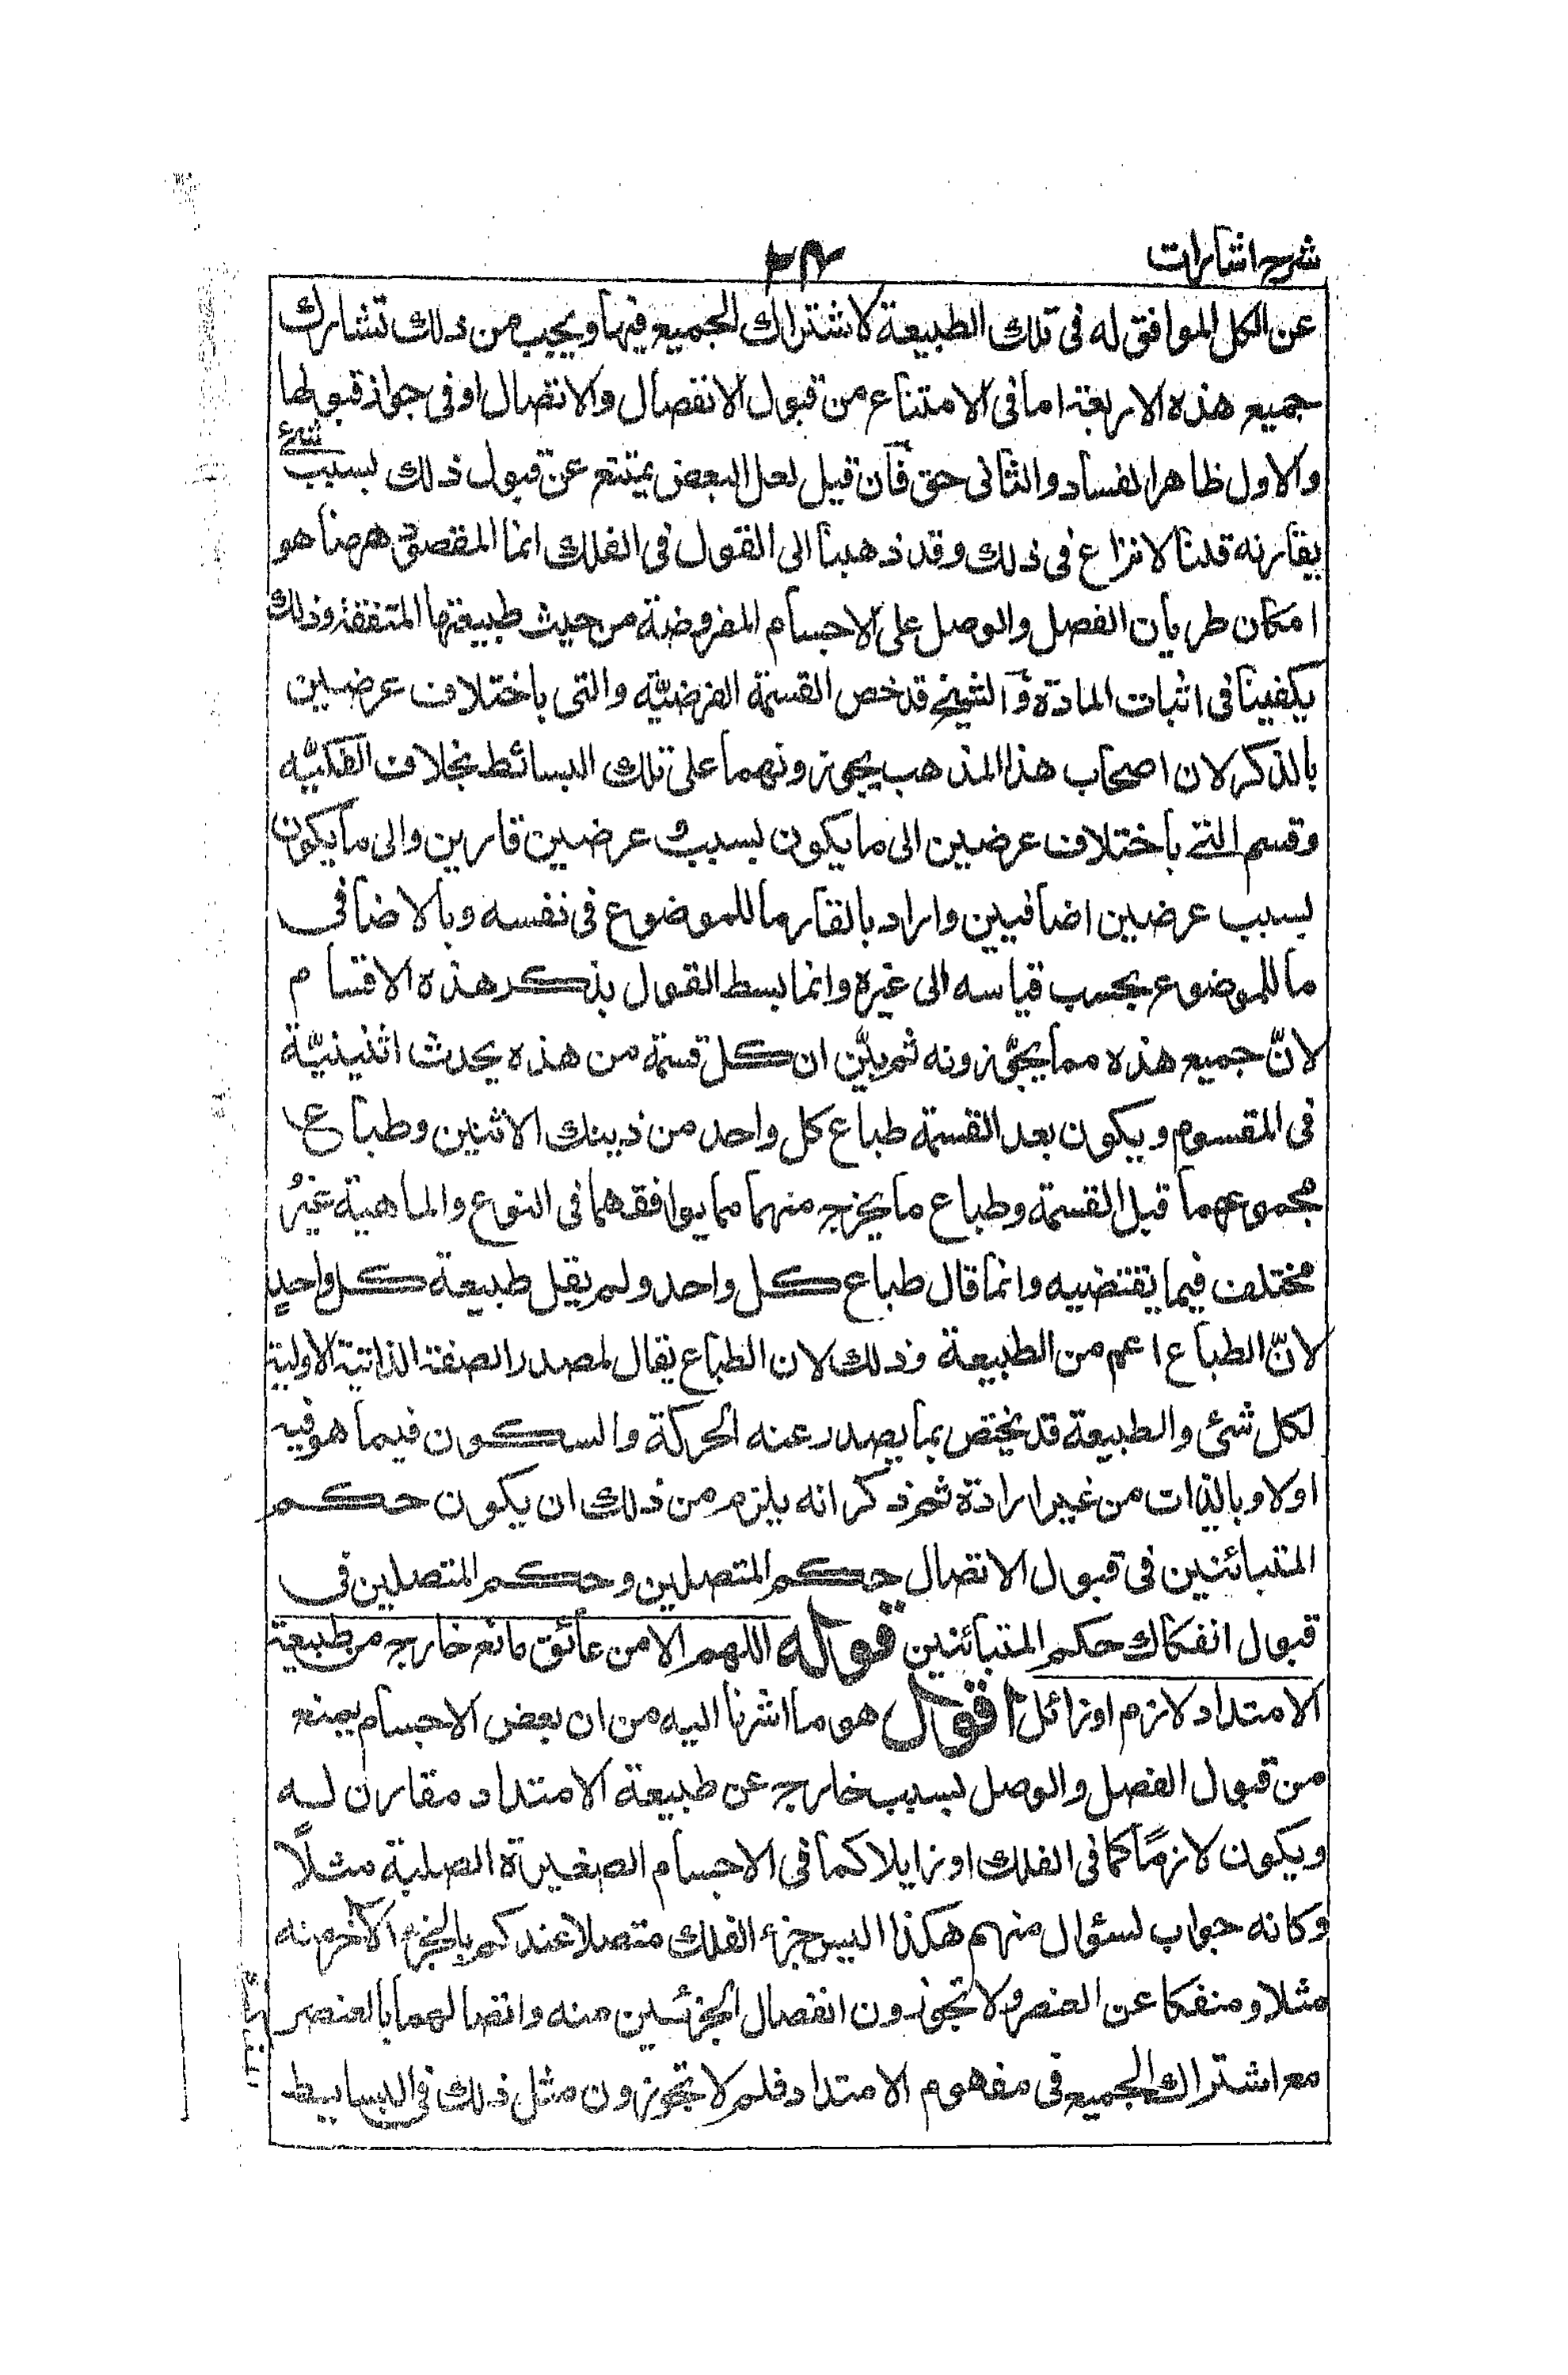 شرح اشارات
٢٤
عن الكل الموافق له فى تلك الطبيعة لاشتراك الجميع فيها ويجب من ذلك تشارك
جميع هذه الاربعة اما فى الامتناع من قبول الانفصال والاتصال او فى جواز قبولها
والاول ظاهر الفساد والثانى حق فآن قيل لعل البعض يمتنع عن قبول ذلك بسبب شئ
يقارنه قلنا لا نزاع فى ذلك وقد ذهبنا الى القول فى الفلك انما المقصود ههنا هو
امكان طريان الفصل والوصل على الاجسام المفروضة من حيث طبيعتها المتفقة وذلك
يكفينا فى اثبات المادّة وٓالشيخ قد خص القسمة الفرضيّه والتى باختلاف عرضين
بالذكر لان اصحاب هذا المذهب يجوزونهما على تلك البسائط بخلاف الفكيّه
وقسم التے باختلاف عرضين الى ما يكون بسبب عرضين قارين والى ما يكون
بسبب عرضين اضافيين واراد بالقار ما للموضوع فى نفسه وبالاضافى
ما للموضوع بحسب قياسه الى غيره وانما بسط القول بذكر هذه الاقسام
لانّ جميع هذه مما يجوّزونه ثم بيّن ان كل قسمة من هذه يحدث اثنينيّة
فى المقسوم ويكون بعد القسمة طباع كل واحد من ذينك الاثنين وطباع
مجموعهما قبل القسمة وطباع ما يخرج منهما مما يوافقهما فى النوع والماهية غيرُ
مختلف فيما يقتضيه وانما قال طباع كل واحد ولم يقل طبيعة كل واحدٍ
لانّ الطباع اعم من الطبيعة وذلك لان الطباع يقال لمصدر الصفة الذاتية الاولية
لكل شئ والطبيعة قد يختص بما يصدر عنه الحركة والسكون فيما هو فيه
اولا وبالذات من غير ارادة ثم ذكر انه يلزم من ذلك ان يكون حكم
المتبائنين فى قبول الاتصال حكم المتصلين وحكم المتصلين فى
قبول انفكاك حكم المتبائنين قوله اللهم الا من عائق مانع خارج من طبيعة
الامتداد لازم او زائل اقول هو ما اشرنا اليه من ان بعض الاجسام يمنع
من قبول الفصل والوصل بسبب خارج عن طبيعة الامتداد مقارن له
ويكون لازمًا كما فى الفلك او زايلا كما فى الاجسام الصغيرة الصلبة مثلًا
وكانه جواب لسؤال منهم هكذا اليس جزء الفلك متصلا عندكم بالجزء الآخر منه
مثلا ومنفكا عن العنصر ولا تجوزون انفصال الجزئين منه واتصالهما بالعنصر
مع اشتراك الجميع فى مفهوم الامتداد فلم لا تجوزون مثل ذلك فى البسايط